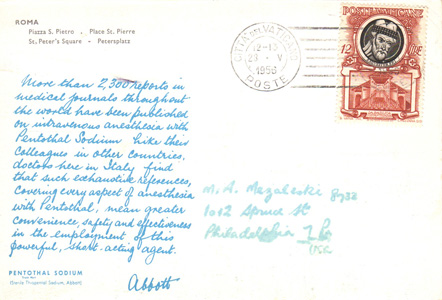 ROMA
Piazza S. Pietro . Place St. Pierre
St. Peter's Square - Petersplatz
CITTÀ DEL VATICANO
12-13
23 · V
1956
POSTE
POSTE VATICANE
12
More than 2,300 reports in
medical journals throughout
the world have been published
on intravenous anesthesia with
Pentothal Sodium. Like their
colleagues in other countries,
doctors here in Italy find
that such exhaustive references,
covering every aspect of anesthesia
with Pentothal, mean greater
convenience, safety and effectiveness
in the employment of this
powerful, short-acting agent.
Abbott
PENTOTHAL SODIUM
(Sterile Thiopental Sodium, Abbott)
M. A.
1012 Spruce St
Philadelphia 7 P